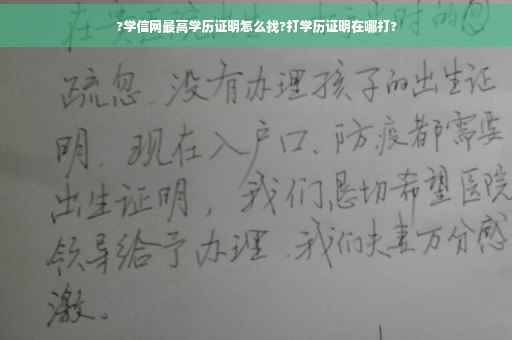 ?学信网最高学历证明怎么找?打学历证明在哪打?
疏忽、没有办理孩子的出生证
明、现在入户口、防疫都需要
出生证明，我们恳切希望医院
领导给予办理、我们夫妻万分感
激。